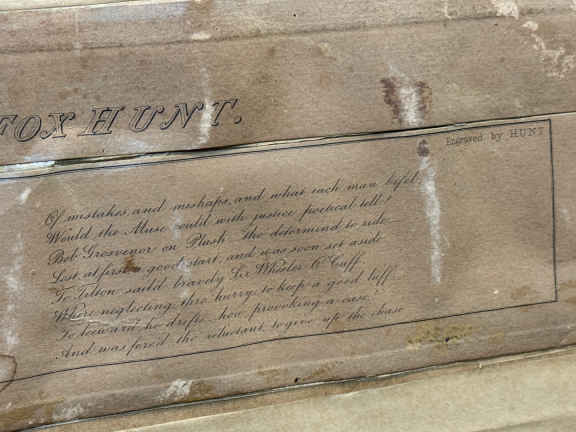 FOX HUNT.
Engraved by HUNT
Of mistakes and mishaps, and what each man befel,
Would the Muse could with justice poetical tell!
Bob Grosvenor on Plush - tho' determin'd to ride
Lost, at first a good start, and was soon set aside
To Tilton sail'd bravely Sir Wheeler O'Cuff.
Where neglecting, thro' hurry, to keep a good luff
To leeward he drifts how provoking a case,
And was forc'd tho' reluctant to give up the chase